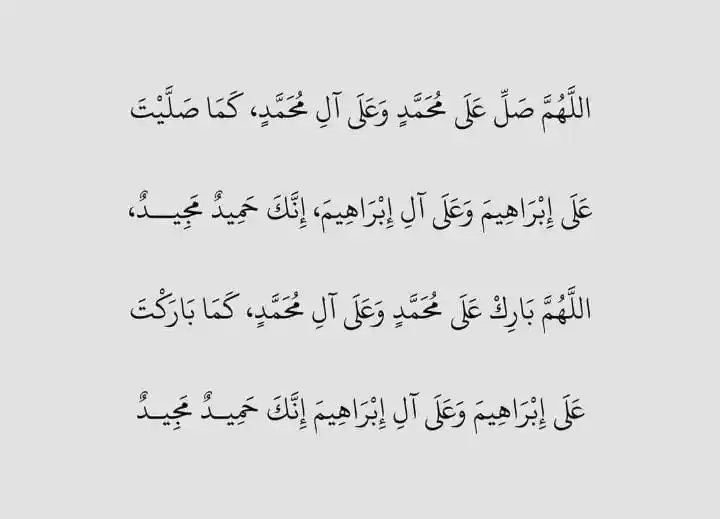 اللَّهُمَّ صَلِّ عَلَى مُحَمَّدٍ وَعَلَى آلِ مُحَمَّدٍ، كَمَا صَلَّيْتَ
عَلَى إِبْرَاهِيمَ وَعَلَى آلِ إِبْرَاهِيمَ، إِنَّكَ حَمِيدٌ مَجِيـــدٌ،
اللَّهُمَّ بَارِكْ عَلَى مُحَمَّدٍ وَعَلَى آلِ مُحَمَّدٍ، كَمَا بَارَكْتَ
عَلَى إِبْرَاهِيمَ وَعَلَى آلِ إِبْرَاهِيمَ إِنَّكَ حَمِيــدٌ مَجِيــدٌ